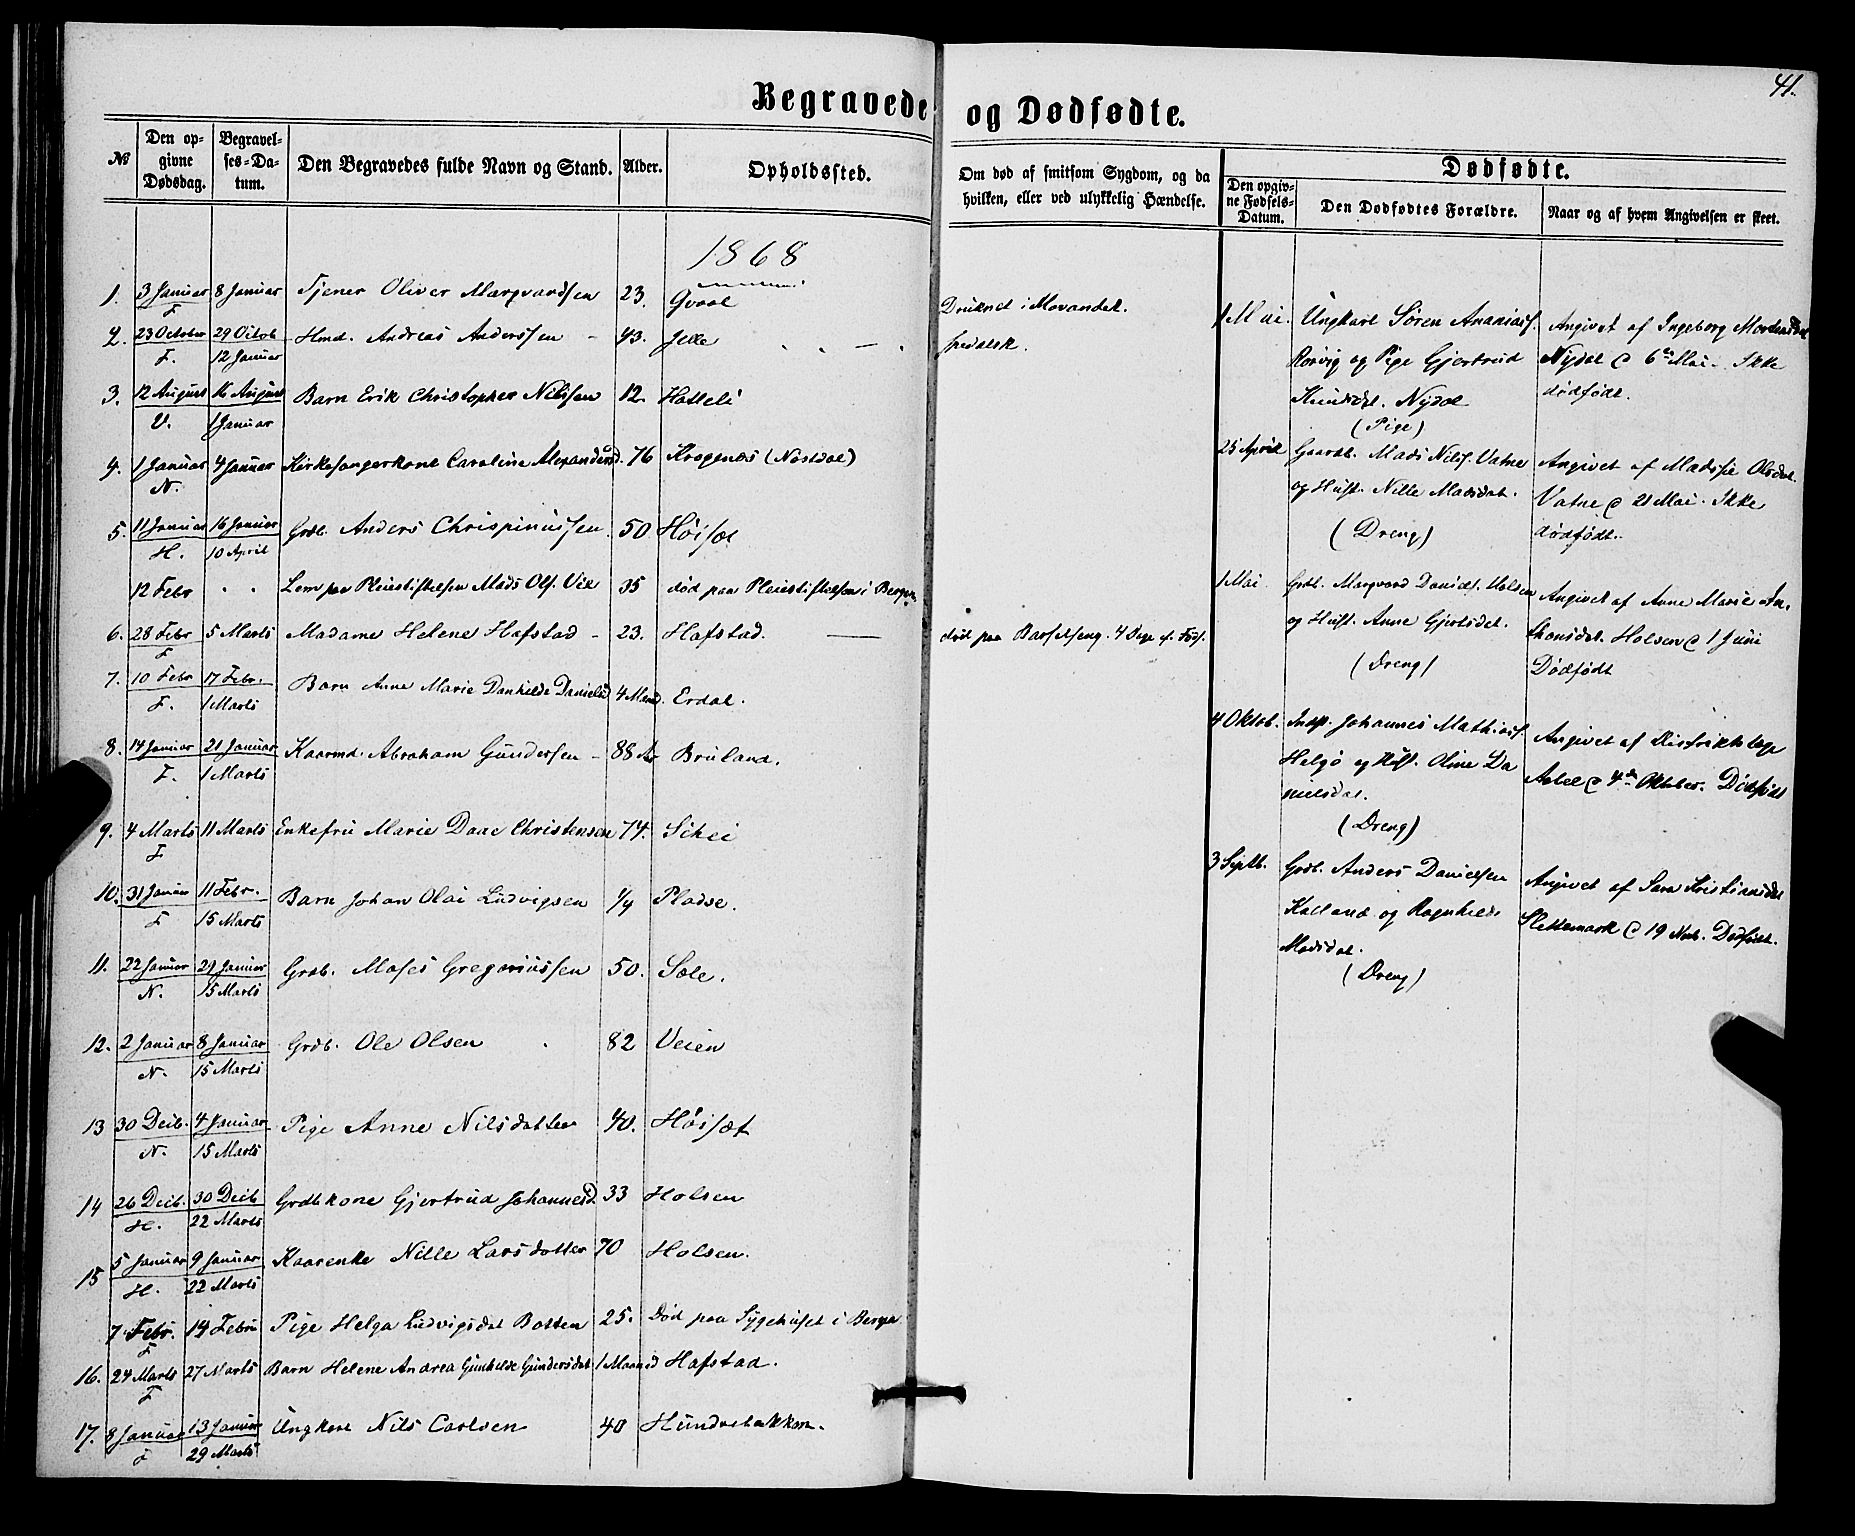 41.
Begravede og Dødfødte.
№
Den opgivne Dødsdag.
Begravelses-Datum.
Den Begravedes fulde Navn og Stand.
Alder.
Opholdssted.
Om død af smitsom Sygdom, og da hvilken, eller ved ulykkelig Hændelse.
Dødfødte.
Den opgivne Fødsels-Datum.
Den Dødfødtes Forældre.
Naar og af hvem Angivelsen er skeet.
1868
1. 3 Januar F 8 Januar Tjener Oliver Marqvardsen 23. Qvaal Druknet i Movandet.
2. 23 October F. 29 Octob 12 Januar Hmd. Andreas Anderssen - 43. Jelle spedalsk.
3. 12 August V. 16 August 1 Januar Barn Erik Christopher Nilssen 12. Hatleli
4. 1 Januar N. 4 Januar Kirkesangerkone Caroline Alexandersd. 76 Kragenæs (Nosdal)
5. 11 Januar H. 16 Januar 10 April Grdb. Anders Chrispinussen 50 Høisæt
12 Febr " " Lem paa Pleiestiftelsen Mads Ols. Vie 35 død paa Pleiestiftelsen i Bergen.
6. 28 Febr F 5 Marts Madame Helene Hafstad - 23. Hafstad. død paa Barselseng. 4 Dage ef. Føds.
7. 10 Febr F. 17 Febr. 1 Marts Barn Anne Marie Danhilde Danielsd 4 Maned. Erdal.
8. 14 Januar F. 21 Januar 1 Marts Kaarmd. Abraham Gundersen - 88 Ar Bruland.
9. 4 Marts F 11 Marts Enkefru Marie Daae Christensen 74. Schei
10. 31 Januar F 11 Febr. 15 Marts Barn Johan Olai Ludvigsen 1/4 Pladse.
11. 22 Januar N. 29 Januar 15 Marts Grdb. Moses Gregoriussen 50. Sæle.
12. 2 Januar N. 8 Januar 15 Marts Grdb. Ole Olsen 82 Veien
13 30 Decb. N. 4 Januar 15 Marts Pige Anne Nilsdatter 40. Høisæt
14 26 Decb. H. 30 Decb 22 Marts Grdbkone Gjertrud Johannesd. 33 Holsen
15 5 Januar H. 9 Januar 22 Marts Kaarenke Nille Larsdatter 70 Holsen.
7 Febr. F 14 Febru Pige Helga Ludvigsdat Botten 25. Død paa Sygehuset i Bergen
16. 24 Marts F 27 Marts Barn Helene Andrea Gunhilde Gundersdat 1 Maaned Hafstad.
17. 8 Januar F 13 Januar 29 Marts Ungkare Nils Carlsen 40 Hundvebakken.
1 Mai. Ungkarl Søren Ananiass.
Rørvig og Pige Gjertrud
Knudsdat. Nydal
(Pige)
Angivet af Ingeborg Mortensdat
Nydal d 6te Mai. Ikke
dødfødt.
25 April Gaardb. Mads Nils. Vatne
og Hust. Nille Madsdat.
(Dreng)
Angivet af Madssie Olsdat.
Vatne d 21 Mai. Ikke
dødfødt.
1 Mai Grdb. Marqvard Daniels. Holsen
og Hust. Anne Gjertsdat.
(Dreng)
Angivet af Anne Marie An-
thonsdat. Holsen d 1 Juni
Dødfødt
4 Oktob. Indst. Johannes Mathiass.
Helgø og Hust. Oline Da
nielsdat.
(Dreng)
Angivet af Distriktslæge
Aabel d 4de Oktober. Dødfødt
3 Septb. Grdb. Anders Danielsen
Kalland og Ragnhilde
Madsdat.
(Dreng)
Angivet af Sara Kristiansdat
Slettemark d 19 Novb. Dødfødt.